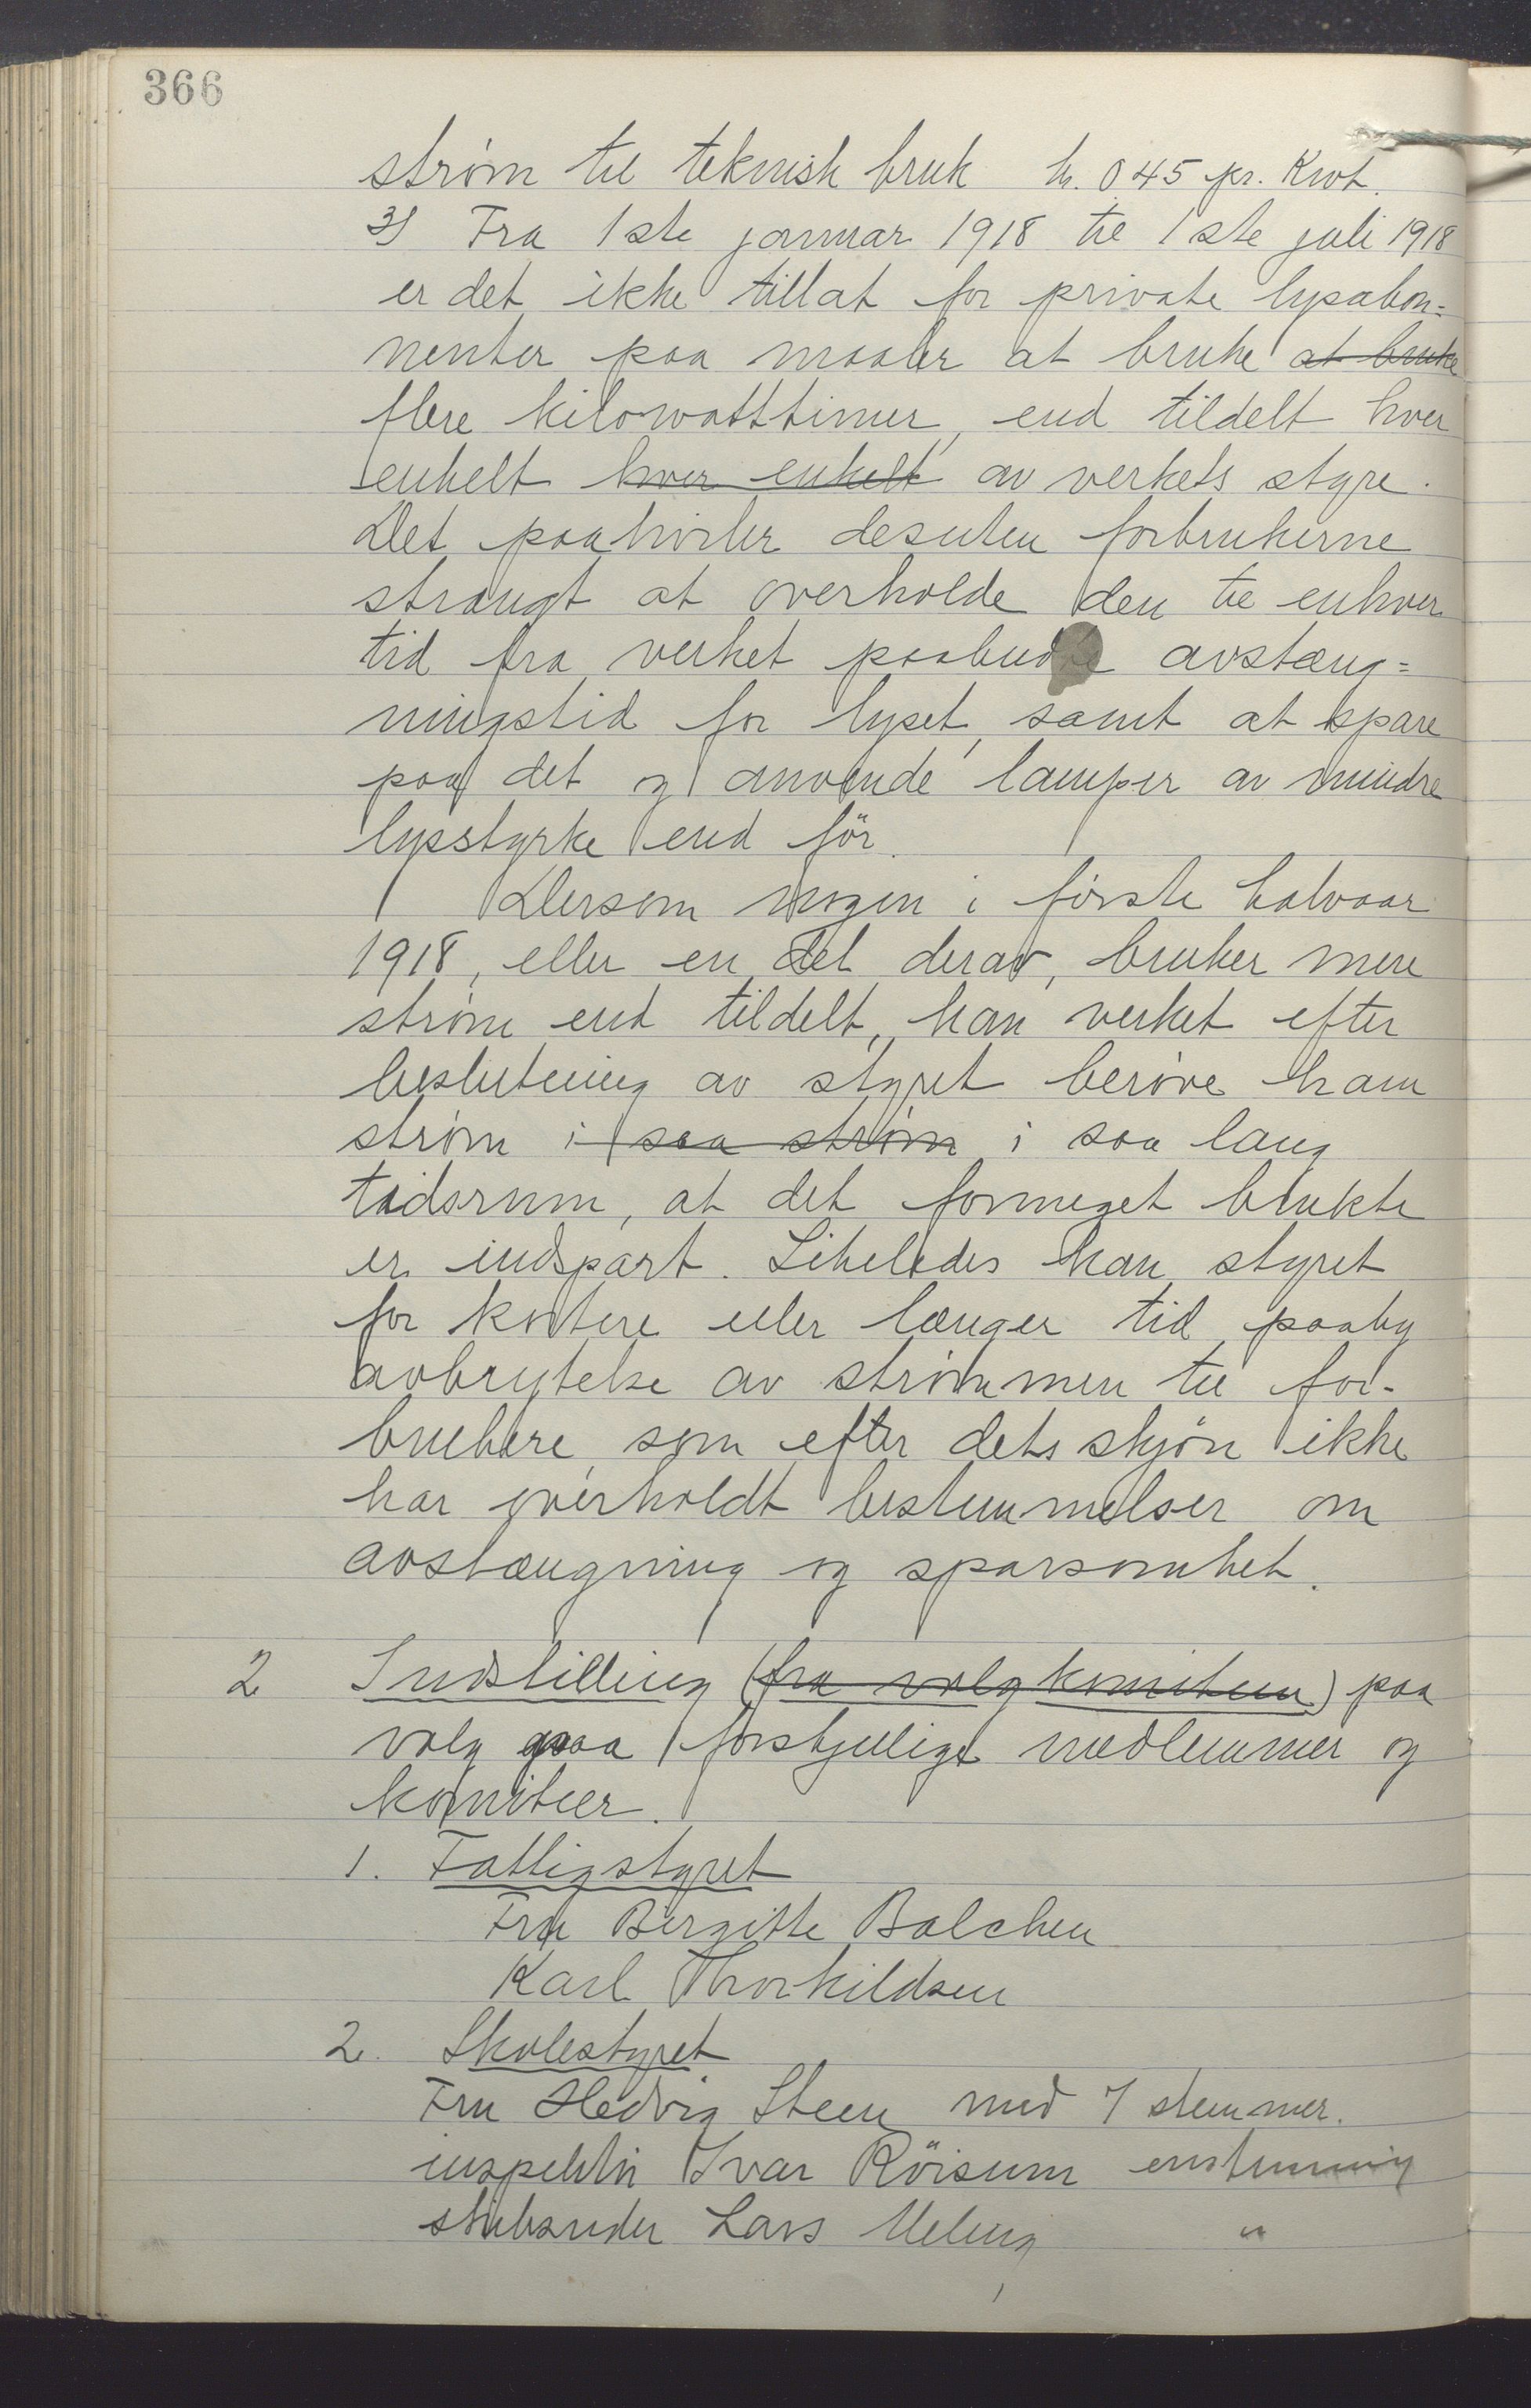 366
strøm til teknisk bruk kr. 0 45 pr. Kwt.
3) Fra 1ste januar 1918 til 1ste juli 1918
er det ikke tillat for private lysabon=
nenter paa maaler at bruke at bruke
flere kilowatttimer, end tildelt hver
enkelt hver enkelt av verkets styre.
Det paahviler desuten forbrukerne
strængt at overholde den til enhver
tid fra verket paabudte avstæng=
ningstid for lyset, samt at spare
paa det og anvende lamper av mindre
lysstyrke end för.
Dersom nogen i første halvaar
1918, eller en del derav, bruker mere
strøm end tildelt, kan verket efter
beslutning av styret berøve ham
strøm i saa strøm i saa lang
tidsrum, at det formeget brukte
er indspart. Likeledes kan styret
for kortere eller længer tid paaby
avbrytelse av strømmen til for-
brukere, som efter dets skjön ikke
har overholdt bestemmelser om
avstængning og sparsomhet.
2 Indstilling (fra valgkomiteen) paa
valg paa forskjellige medlemmer og
komiteer.
1. Fattigstyret
Fru Birgitte Balchen
Karl Thorkildsen
2. Skolestyret
Fru Hedvig Steen med 7 stemmer.
inspektör Ivar Röisum enstemmig
Lars Meling "